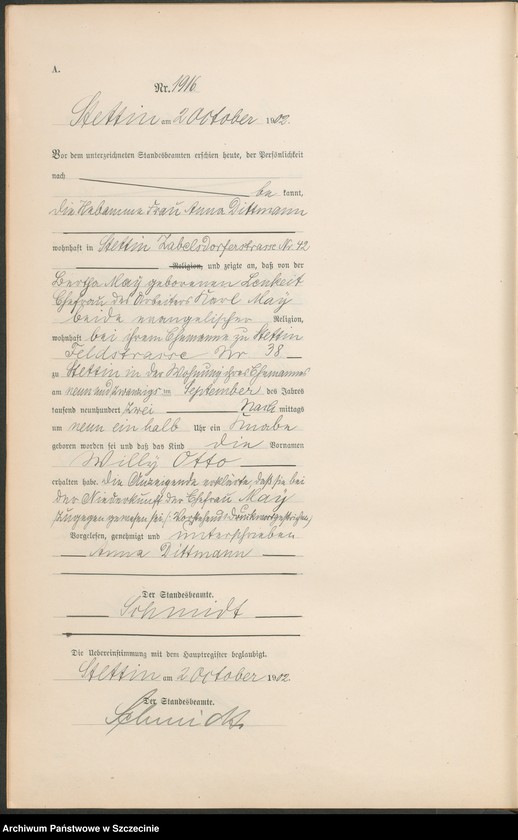 A.
Nr. 1916
Stettin am 2 October 1902.
Vor dem unterzeichneten Standesbeamten erschien heute, der Persönlichkeit
nach
be kannt,
die Hebamme Frau Anna Dittmann
wohnhaft in Stettin Zabelsdorferstrasse Nr 42
Religion, und zeigte an, daß von der
Bertha May geborenen Lenkeit
Ehefrau des Arbeiters Karl May
beide evangelischer Religion,
wohnhaft bei ihrem Ehemanne zu Stettin
Feldstrasse Nr 38
zu Stettin in der Wohnung ihres Ehemannes
am neunundzwanzigs ten September des Jahres
tausend neunhundert zwei Nach mittags
um neun einhalb Uhr ein Knabe
geboren worden sei und daß das Kind die Vornamen
Willy Otto
erhalten habe. Die Anzeigende erklärte, daß sie bei
der Niederkunft der Ehefrau May
zugegen gewesen sei, Vorstehend 1 Druckwort gestrichen
Vorgelesen, genehmigt und unterschrieben
Anna Dittmann
Der Standesbeamte.
Schmidt
Die Uebereinstimmung mit dem Hauptregister beglaubigt.
Stettin am 2 October 1902
Der Standesbeamte.
Schmidt
Archiwum Państwowe w Szczecinie